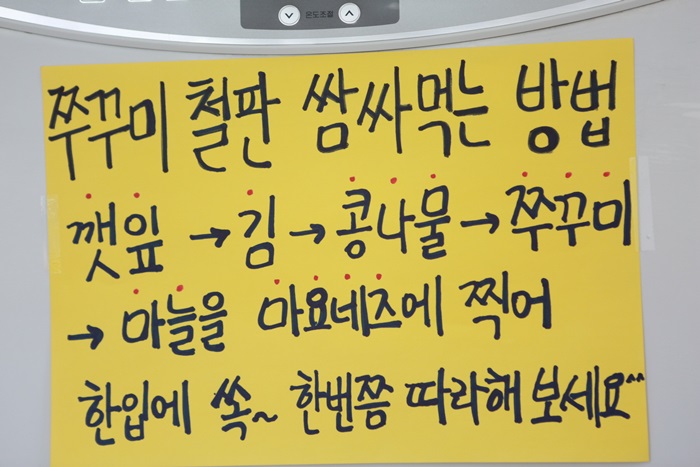 온도조절
쭈꾸미 철판 쌈싸먹는 방법
깻잎 → 김 → 콩나물 → 쭈꾸미
→ 마늘을 마요네즈에 찍어
한입에 쏙~ 한번쯤 따라해 보세요^^